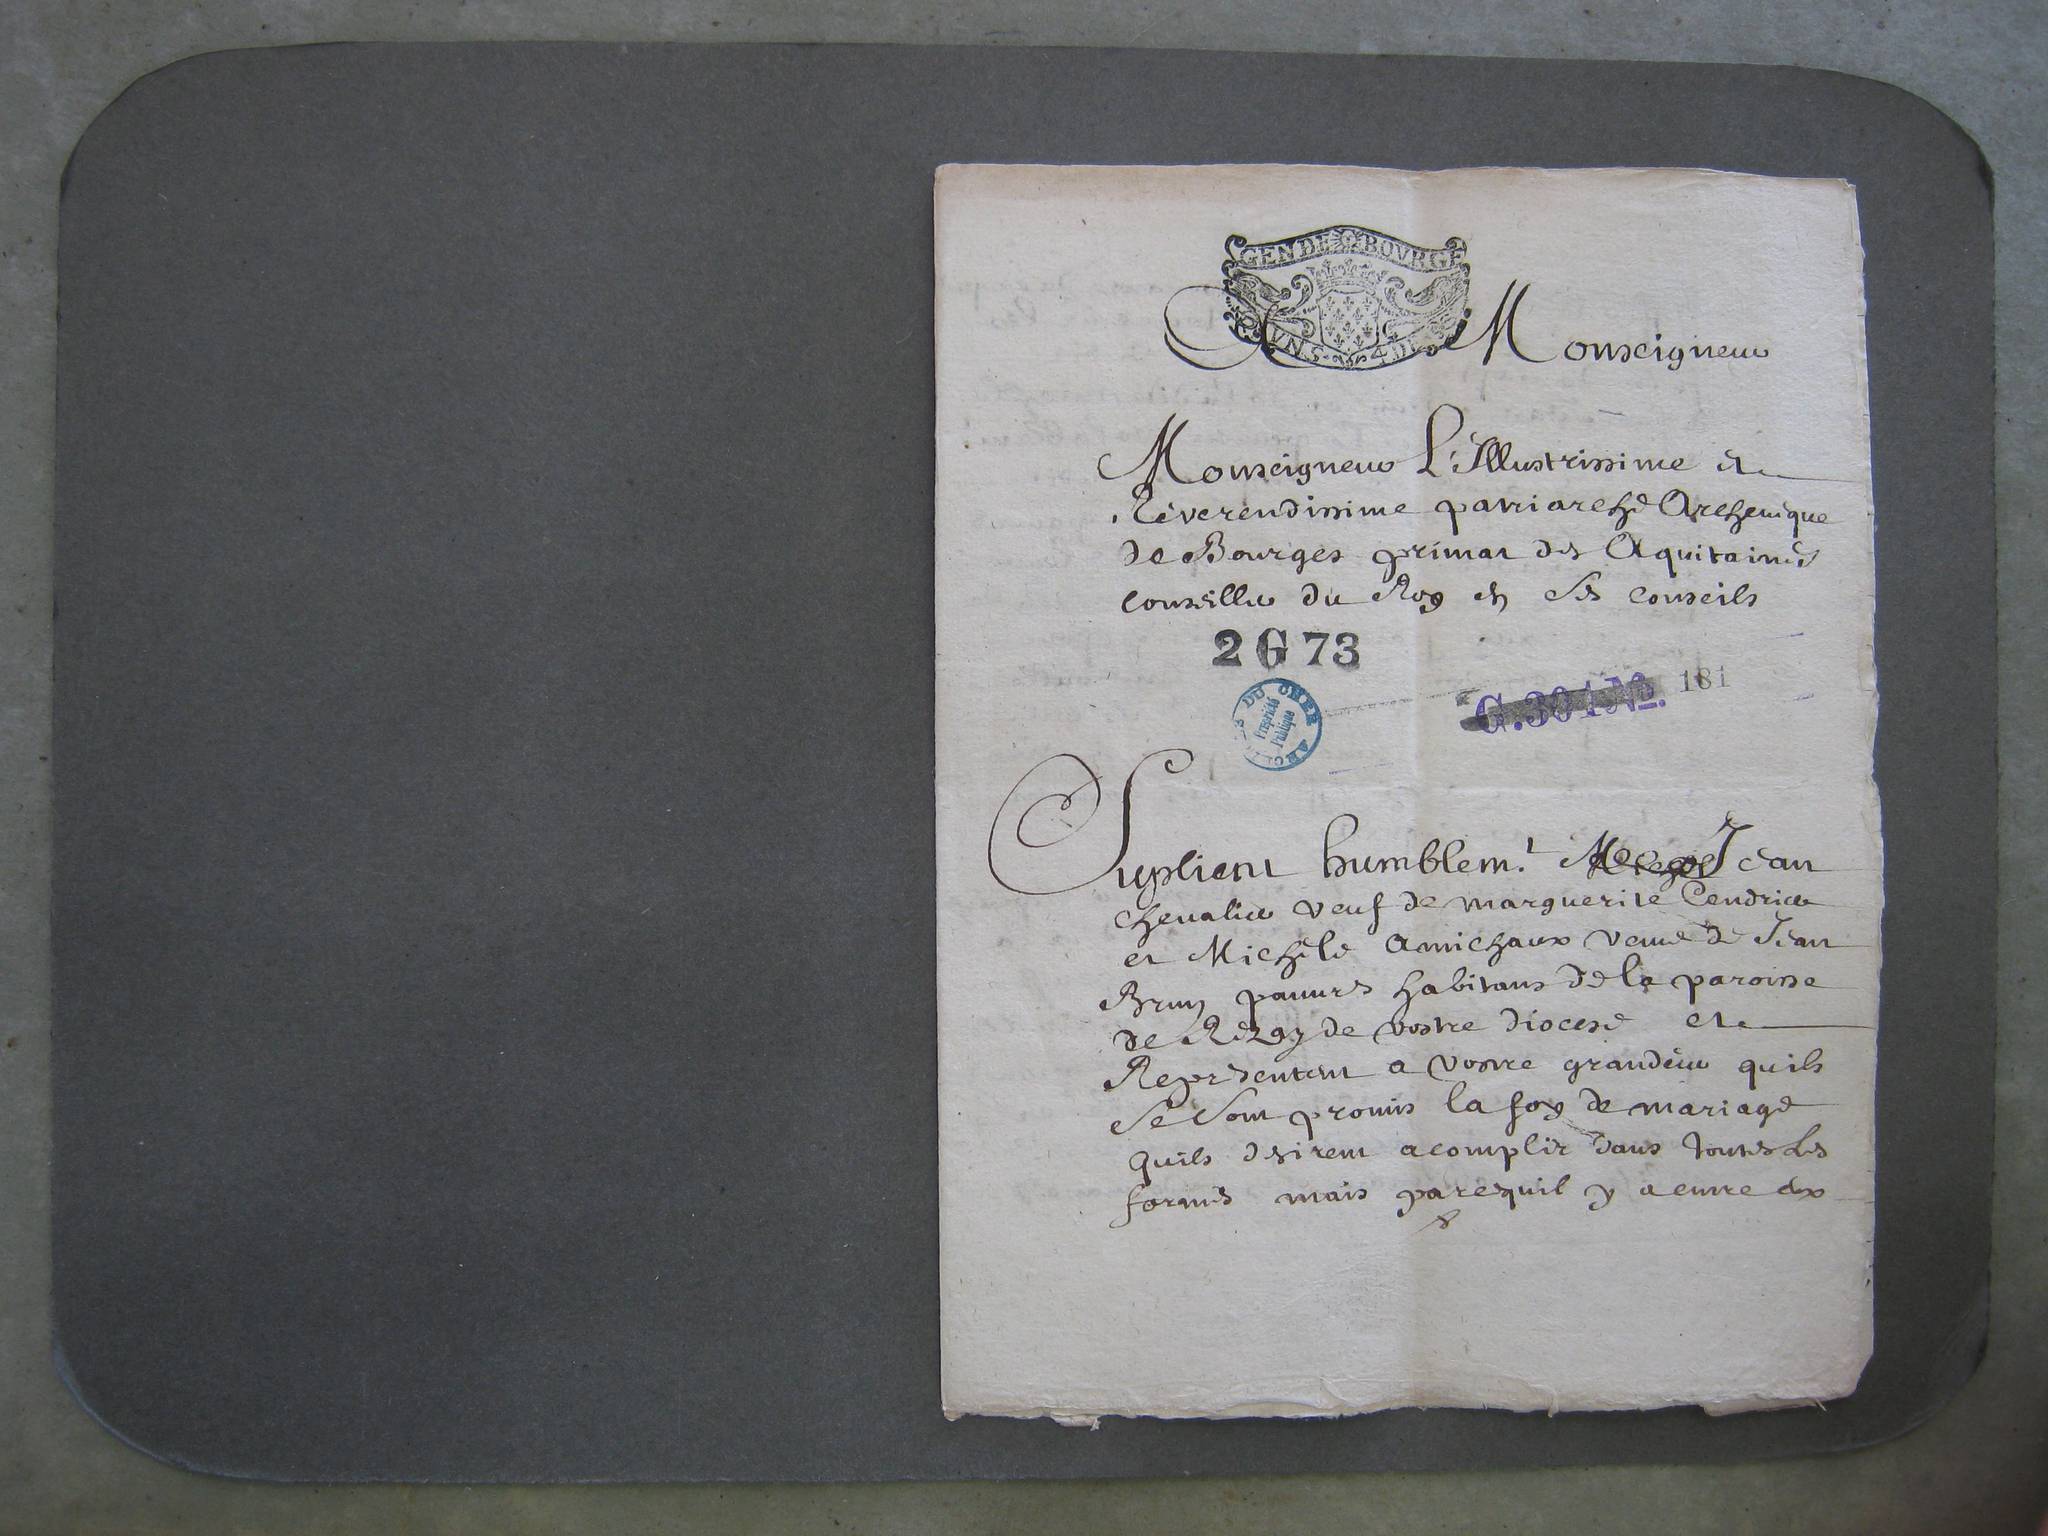 GEN DE BOVRGE
VNS 4 DE
A Monseigneur
Monseigneur L'Illustrissime et
Réverendissime patriarche Archeuique
de Bourges primat des Aquitaines
Conseiller du Roy en Ses Conseils
2 G 73
G. 301 No. 181
DU CHER ARCH
Propriété
Publique
Suplient humblemt. Jean
Chevalier veuf de marguerite Cendrier
et Michele amichaux veuue de Jean
Brun pauures habitans de la paroisse
de Rezay de vostre diocese et
Representent a vostre grandeur quils
Se Sont promis la foy de mariage
quils desirent acomplir dans toutes Les
formes mais parcequil y a entre eux